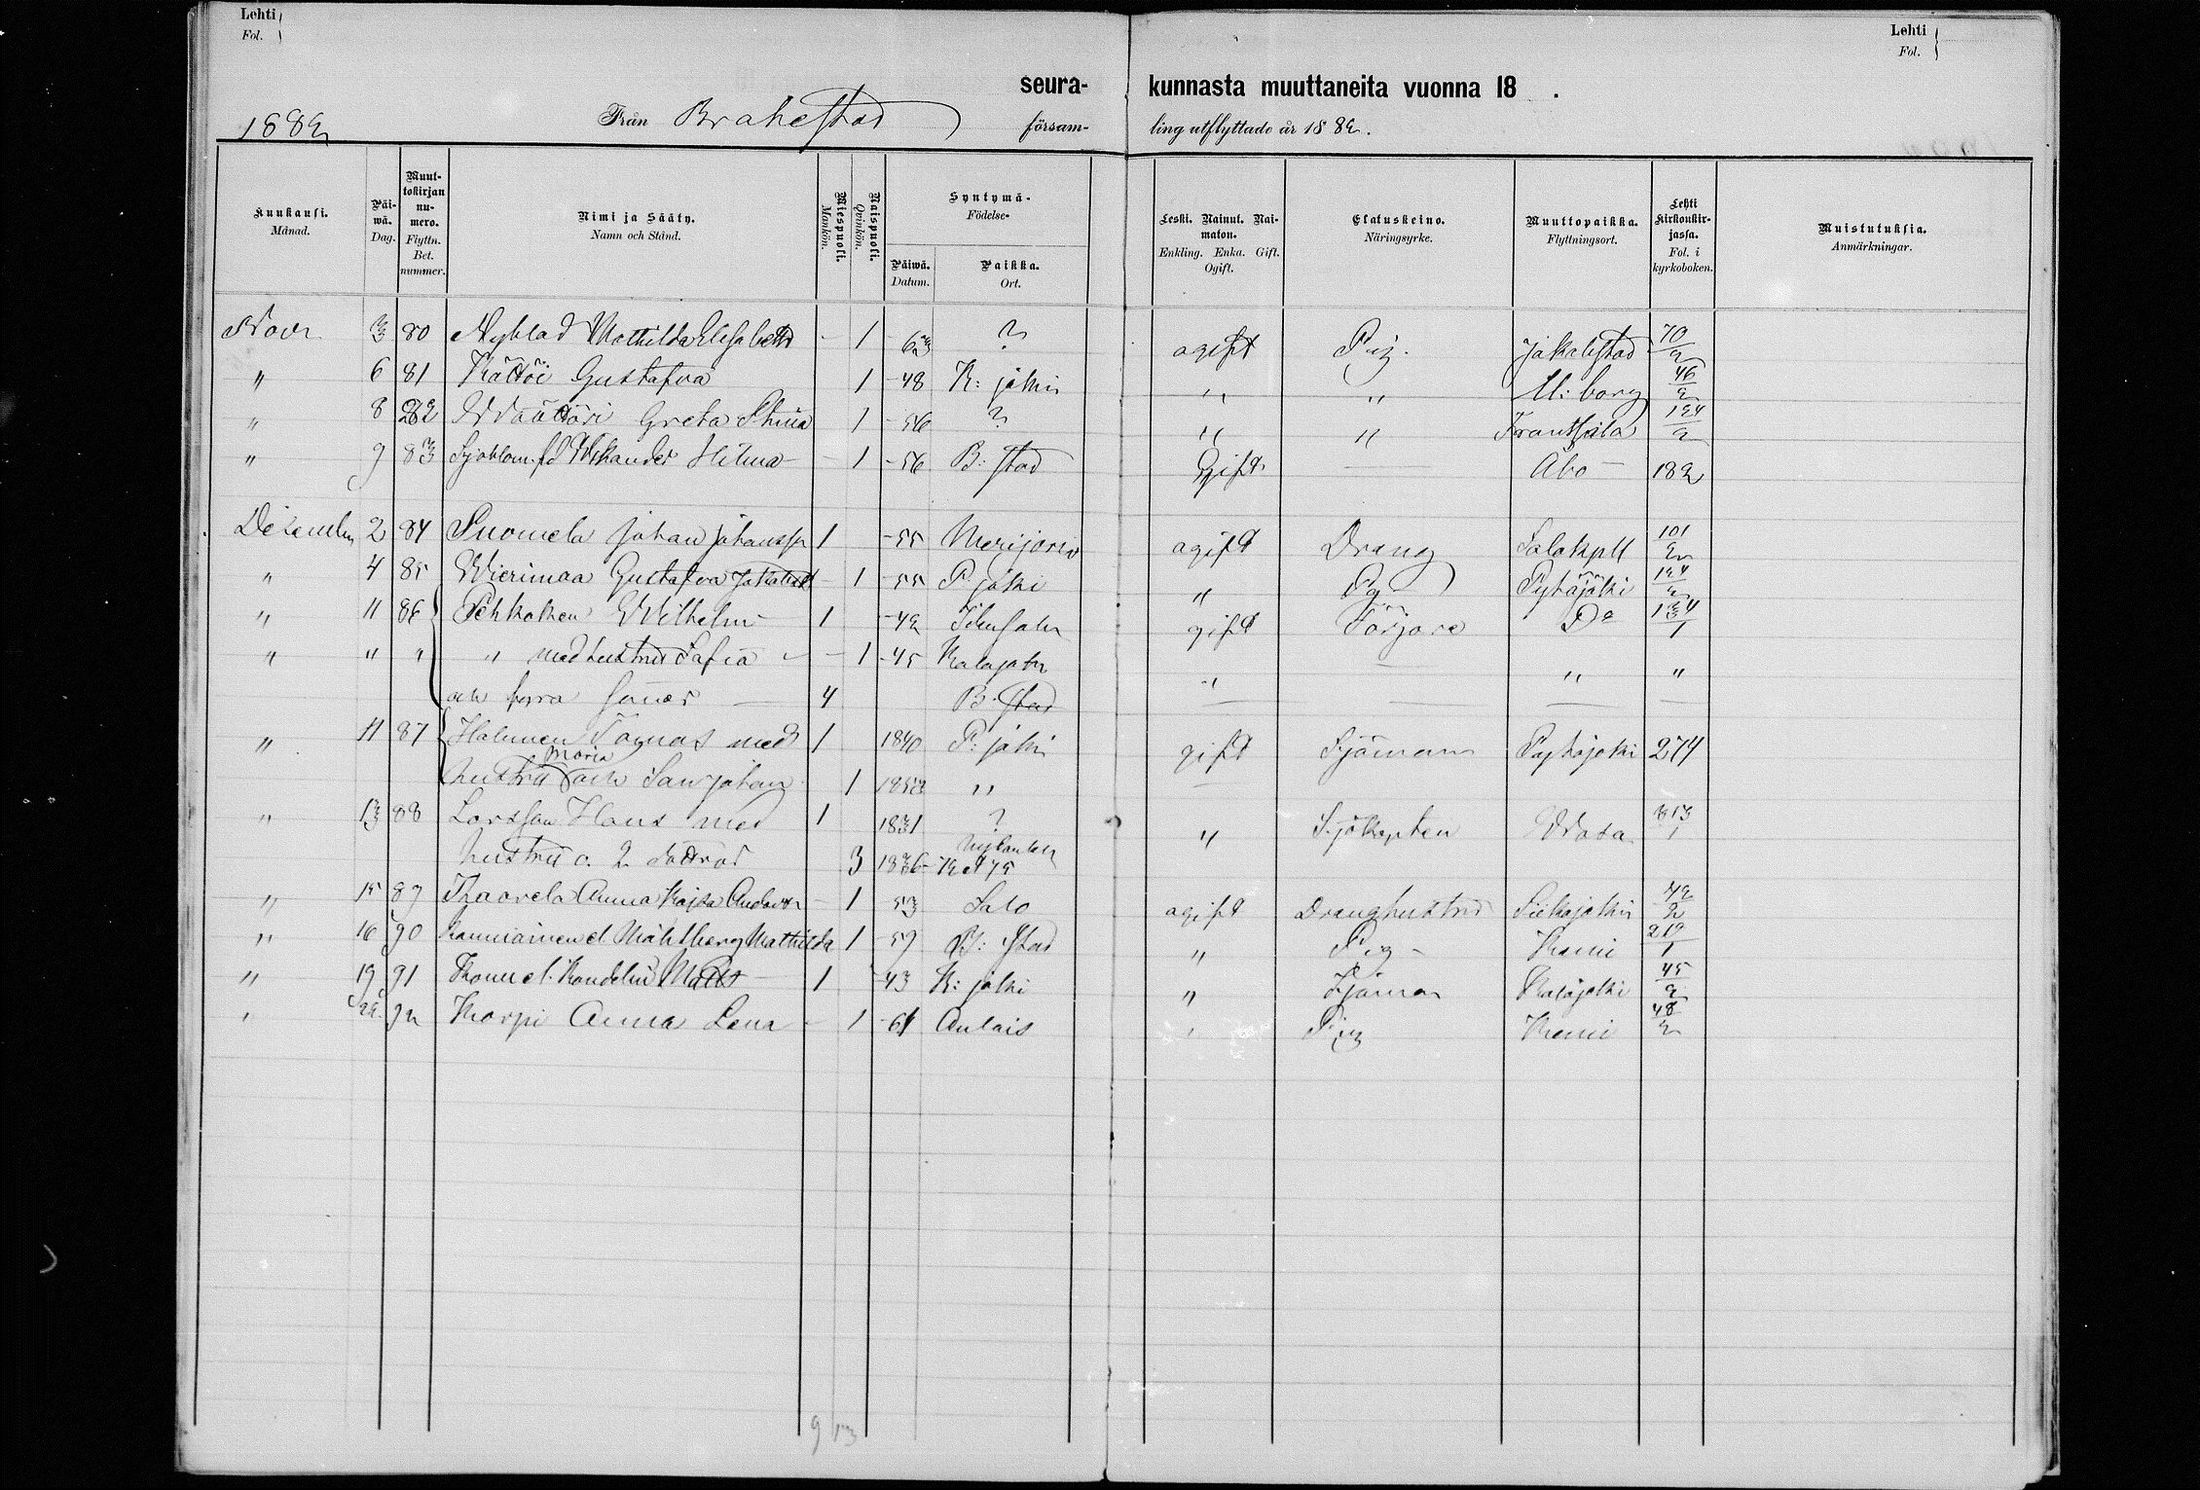 Lehti
Fol.
Lehti
Fol.
seura- kunnasta muuttaneita vuonna 18 .
1882 Från Brahestad försam- ling utflyttade år 1882.
Kuukausi. Månad.
Päiwä. Dag.
Muuttokirjan numero. Flyttn. Bet. nummer.
Nimi ja Sääty. Namn och Stånd.
Miespuoli. Mankön.
Naispuoli. Qvinkön.
Syntymä- Födelse-
Päiwä. Datum.
Paikka. Ort.
Leski. Nainut. Naimaton. Enkling. Enka. Gift. Ogift.
Elatuskeino. Näringsyrke.
Muuttopaikka. Flyttningsort.
Lehti Kirkonkirjassa. Fol. i kyrkoboken.
Muistutuksia. Anmärkningar.
Novr 3 80 Nyblad Mathilda Elisabeth - 1 -63 ? ogift Pig. Jakobstad 70/2
" 6 81 Gustafva 1 -48 K: joki " " U:borg 46/2
" 8 82 Greta Stina 1 -56 ? " " Frantsila 124/2
" 9 83 Sjöblom fd Wikander Hilma - 1 -56 B: stad Gift — Åbo 182
December 2 84 Suomela Johan Johansson 1 -55 Merijärvi ogift Dräng Salo kpll 101/2
" 4 85 Wierimaa Gustafva - 1 -55 P joki " Pig Pyhäjoki 124/2
" 11 86 Pehkonen Wilhelm 1 -42 gift Do 134/1
" " " " med hustru Sofia - 1 -45 Kalajoki " — " "
och fyra söner — 4 B. stad — — — —
" 11 87 Halunen Tomas med 1 1840 P: joki gift Sjöman Pyhäjoki 274
hustru Maria och Son Johan 1 1852 " —
" 13 88 Larsson Hans med 1 1831 ? " Sjökapten Wasa 313/1
hustru o. 2 döttrar 3 1836
" 15 89 Anna Kajsa - 1 53 Salo ogift Dränghustru Siikajoki 42/2
" 16 90 Mathilda 1 -59 B: stad " Pig - Kemi 212/1
" 19 91 Matts 1 -43 K: joki " Sjöman Kalajoki 45/2
" 92 Korpi Anna Lena - 1 -61 " Pig Kemi 48/2
9 13